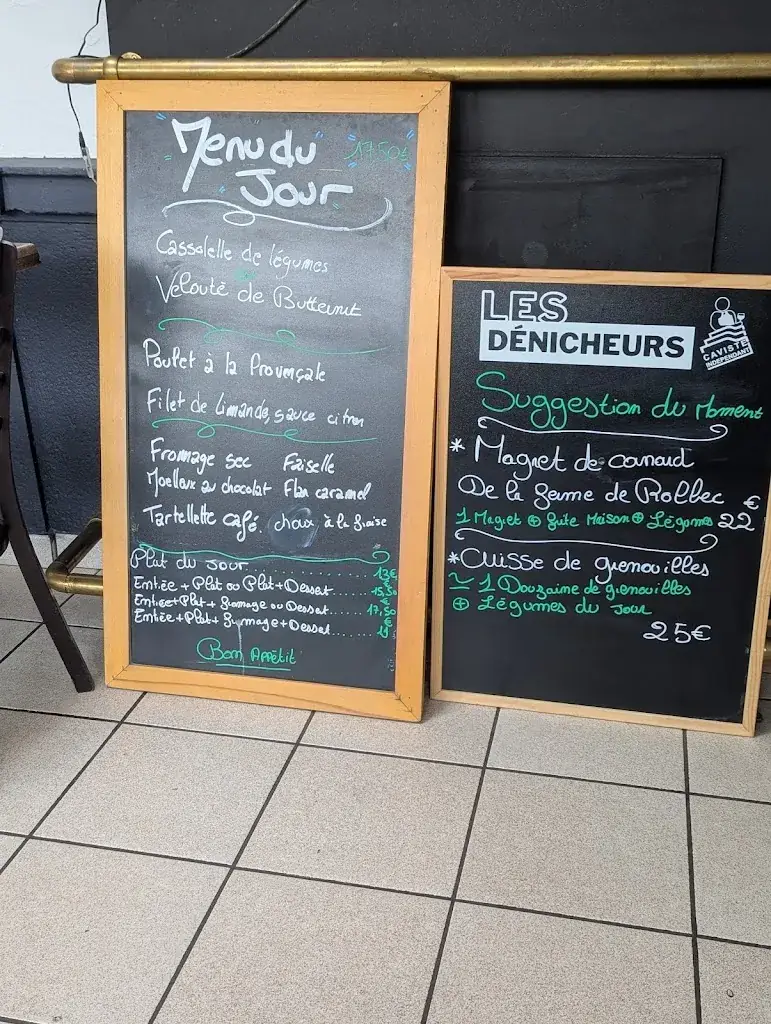 Menu du
17,50€
Jour
Cassolette de légumes
ou
Velouté de Butternut
Poulet à la Provençale
Filet de limande, sauce citron
Fromage sec Faiselle
Moelleux au chocolat Flan caramel
Tartellette café. choux à la fraise
Plat du Jour .......... 13€
Entrée + Plat ou Plat + Dessert ...... 15,50€
Entrée + Plat + fromage ou Dessert ...... 17,50€
Entrée + Plat + Fromage + Dessert ....... 21
Bon Appétit
LES
DÉNICHEURS
CAVISTE
INDEPENDANT
Suggestion du Moment
* Magret de canard
De la ferme de Rolbec €
1 Magret ⊕ frite Maison ⊕ Légume 22
* Cuisse de grenouilles
~ 1 Douzaine de grenouilles
⊕ Légumes du Jour
25€